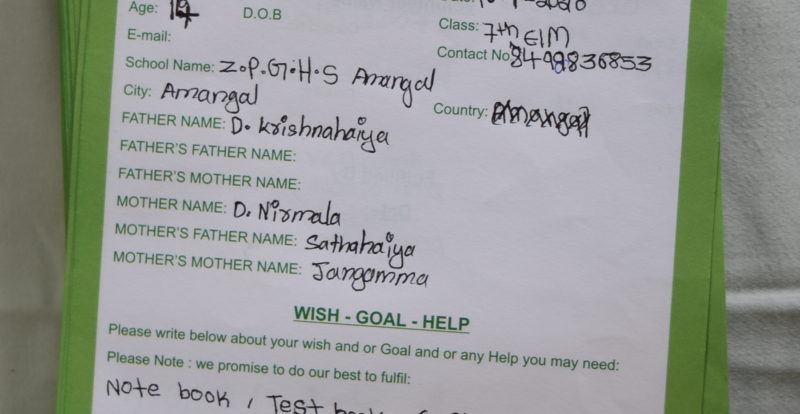 Age: 14 D.O.B
Class: 7th E/M
E-mail:
Contact No: 8499836853
School Name: Z.P.G.H.S Amangal
City: Amangal
Country: Amangal
FATHER NAME: D. Krishnahaiya
FATHER'S FATHER NAME:
FATHER'S MOTHER NAME:
MOTHER NAME: D. Nirmala
MOTHER'S FATHER NAME: Sathahaiya
MOTHER'S MOTHER NAME: Jangamma
WISH - GOAL - HELP
Please write below about your wish and or Goal and or any Help you may need:
Please Note : we promise to do our best to fulfil:
Note book , Test